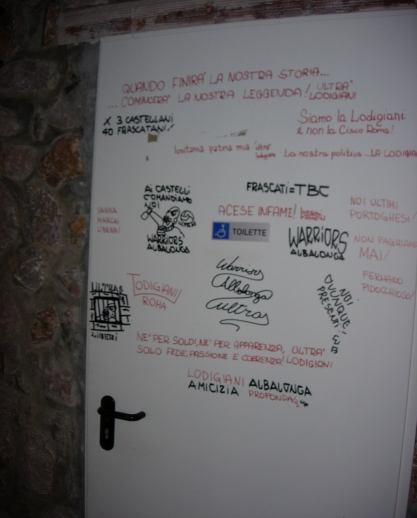 QUANDO FINIRA' LA NOSTRA STORIA...
... COMINCERA' LA NOSTRA LEGGENDA! ULTRA' LODIGIANI
X 3 CASTELLANI
40 FRASCATANI!
Siamo la Lodigiani
e non la Cisco Roma!
La nostra politica... LA LODIGIANI
AI CASTELLI
COMANDIAMO
NOI
WARRIORS
ALBALONGA
FRASCATI=TBC
ACESE INFAME!
TOILETTE
WARRIORS
ALBALONGA
NOI ULTIMI
PORTOGHESI!
NON PAGHIAMO
MAI!
FERNANDO
ULTRAS
LIBERI
LODIGIANI
ROMA
Warriors
Albalonga
Cultras
NOI
OVUNQUE
PRESENTI
NE' PER SOLDI, NE' PER APPARENZA, ULTRA'
SOLO FEDE, PASSIONE E COERENZA! LODIGIANI
LODIGIANI ALBALONGA
AMICIZIA PROFONDA